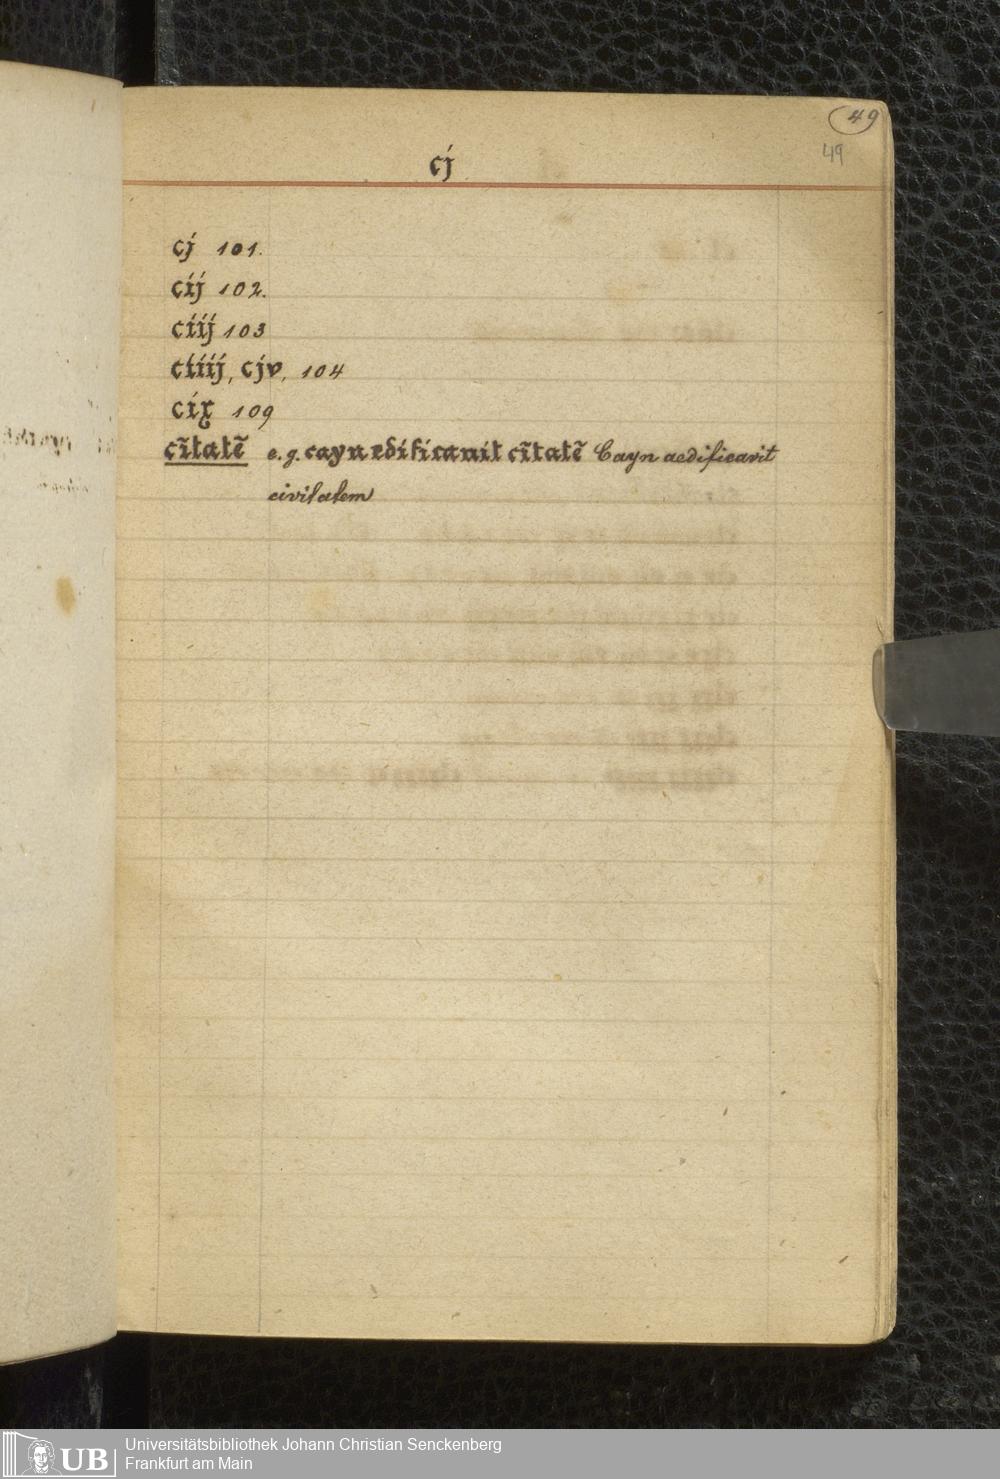 49
49
cj
cj 101.
cij 102.
ciij 103
ciiij, cjv, 104
cix 109
cĩtatẽ e.g. cayn edificauit cĩtatẽ Cayn aedificavit
civitatem
UB
Universitätsbibliothek Johann Christian Senckenberg
Frankfurt am Main